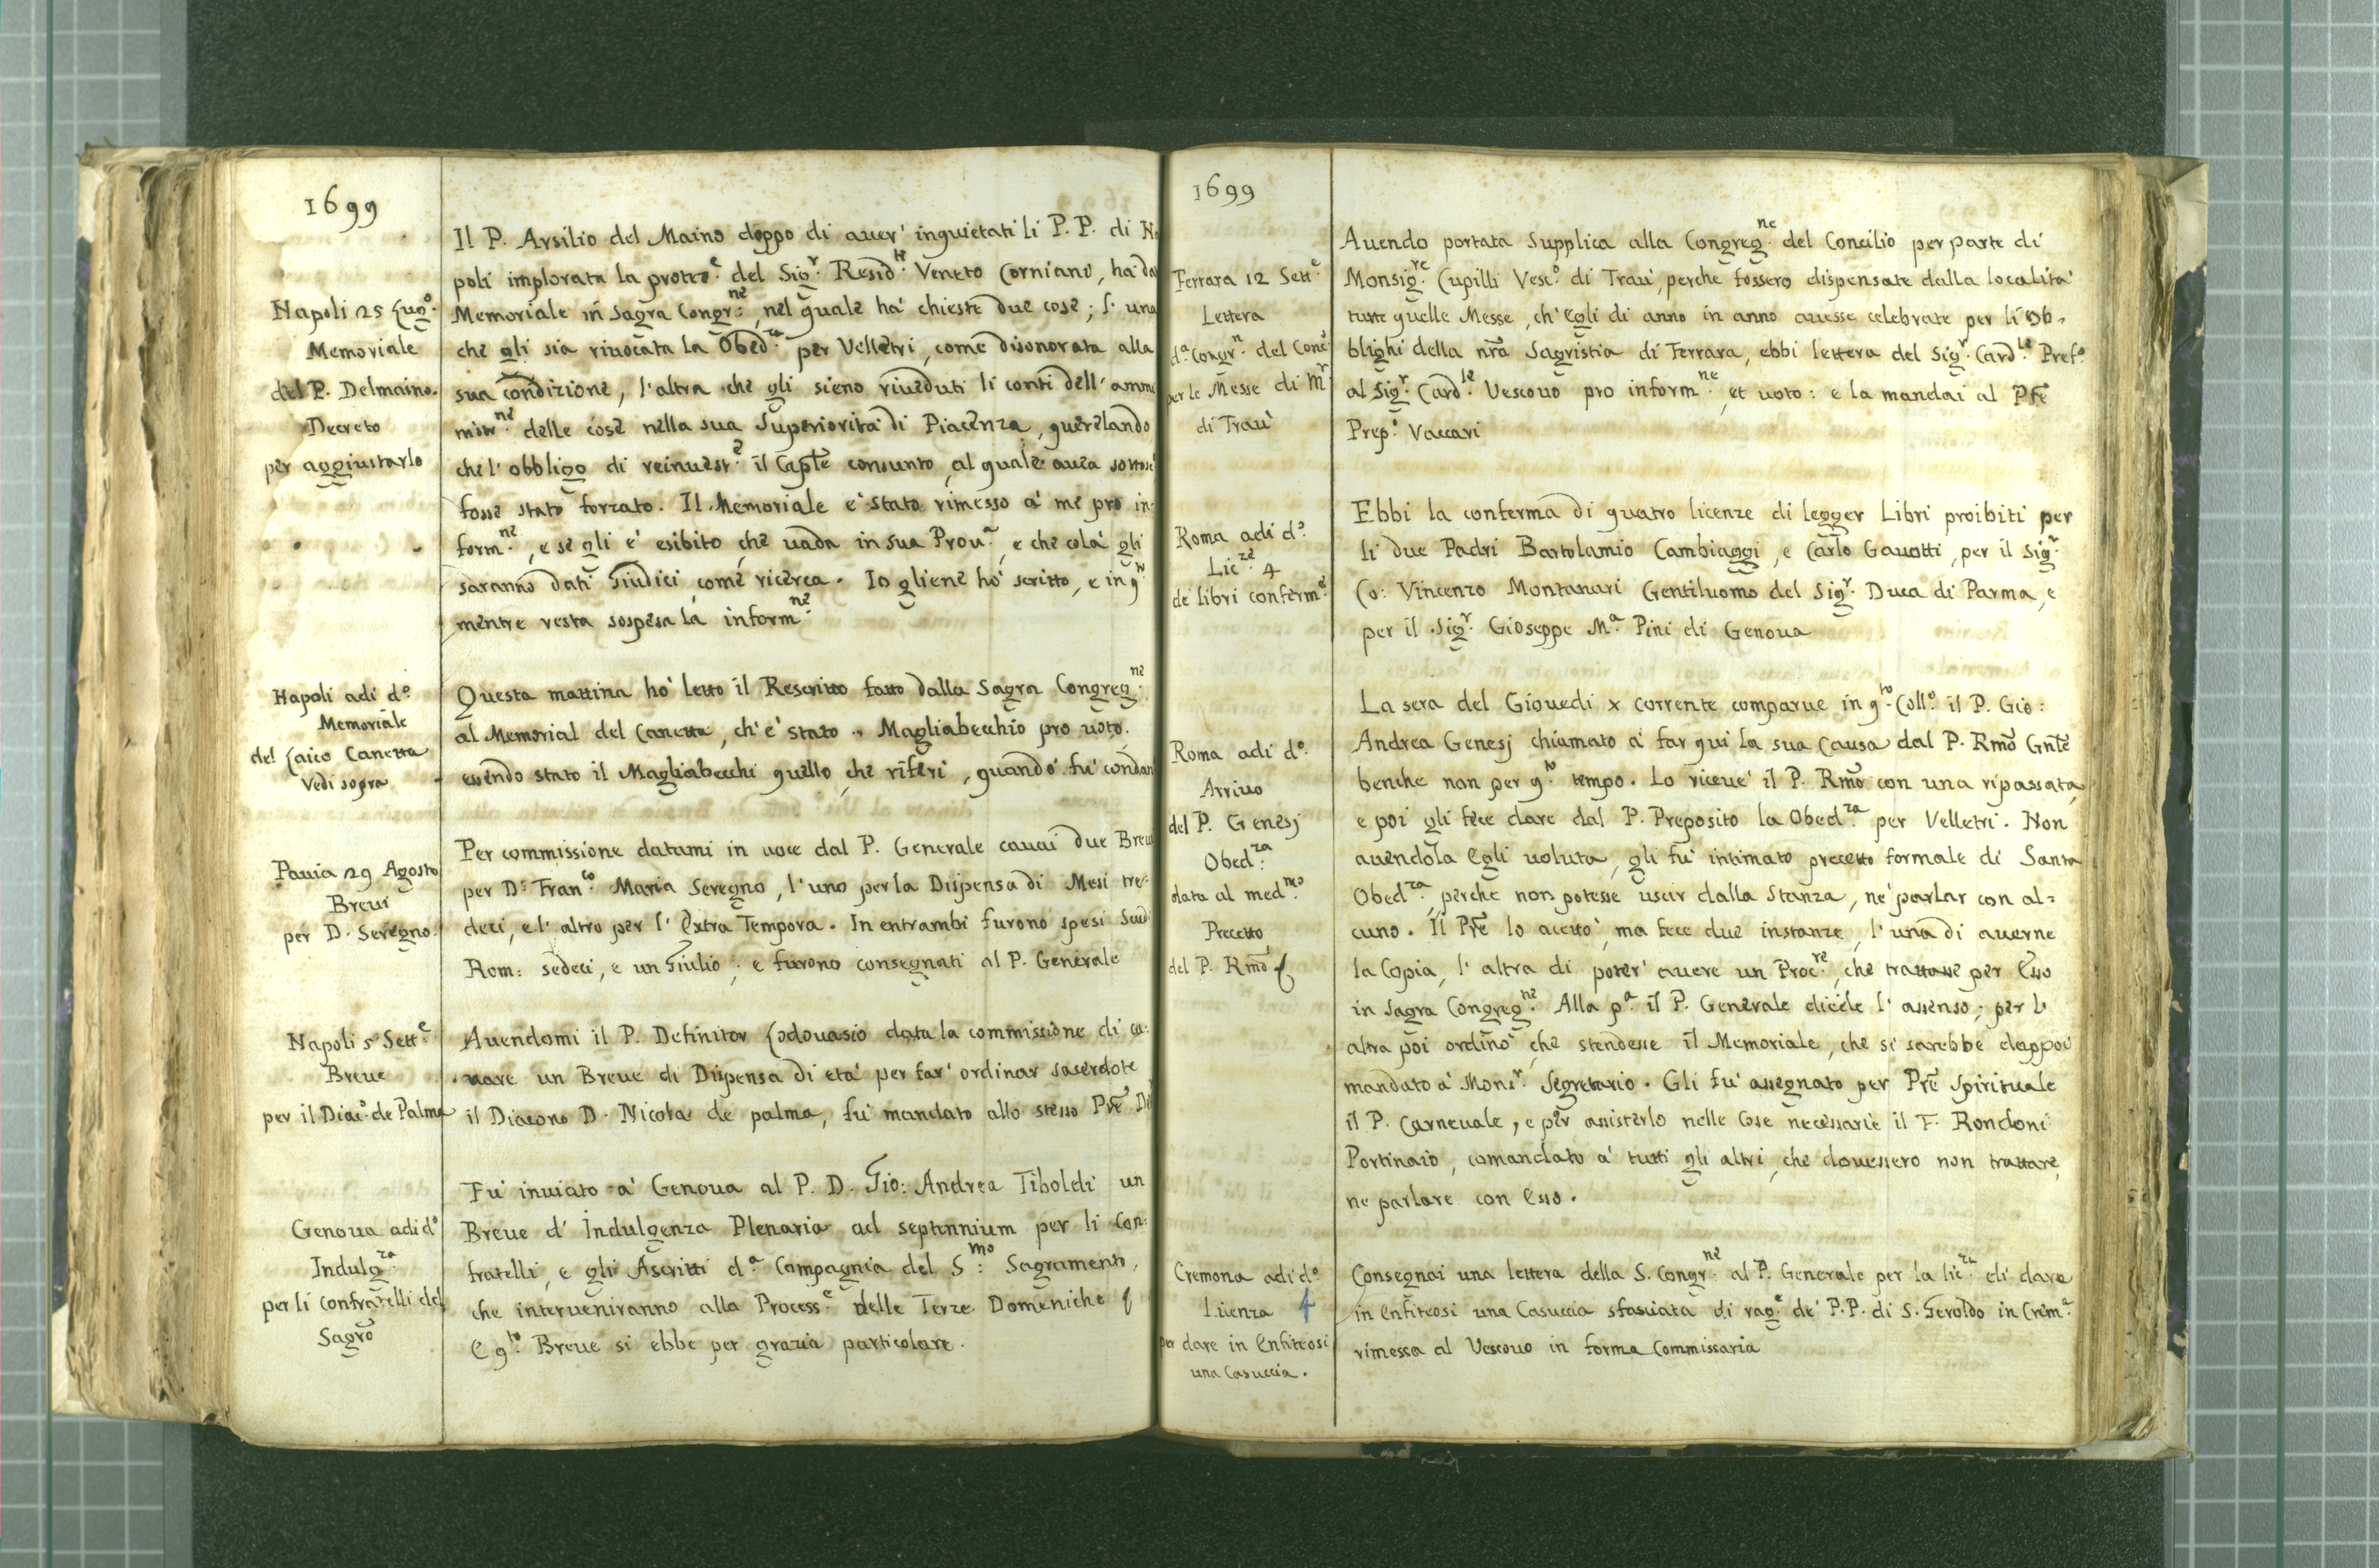 1699
Il P. Arsilio del Maino doppo di auer' inquietati li P.P. di Na
poli implorata la protez.e del Sig.r Resid.te Veneto Corniani, ha da
Napoli 25 Lug.o
Memoriale
del P. Delmaino.
Decreto
per aggiustarlo
Memoriale in Sagra Congr.ne, nel quale ha' chieste due cose; l' una
che gli sia riuocata la Obed.za per Velletri, come disonorata alla
sua condizione, l'altra che gli sieno riueduti li conti dell' ammi
nistr.ne delle cose nella sua Superiorità di Piacenza, querelando
che l' obbligo di reinuest.e il Caple consunto, al quale auea sottosc
fosse stato forzato. Il Memoriale e' stato rimesso a' me pro in-
form.ne, e se gli e' esibito che uada in sua Prou.a, e che colà gli
saranno dati Giudici, come ricerca. Io gliene ho' scritto, e in q.to
mentre resta sospesa la inform.ne
Napoli adi d.o
Memoriale
del Laico Canetta
Vedi sopra
Questa mattina ho' letto il Rescritto fatto dalla Sagra Congreg.ne
al Memorial del Canetta, ch' e' stato .. Magliabecchio pro uoto.
essendo stato il Magliabecchi quello, che riferi, quando fu' condan
Pauia 29 Agosto
Breui
per D. Seregno.
Per commissione datami in uoce dal P. Generale cauai due Breui
per D. Fran.co Maria Seregno, l'uno per la Dispensa di Mesi tre-
deci, e l' altro per l' Extra Tempora. In entrambi furono spesi Scud
Rom: sedeci, e un Giulio; e furono consegnati al P. Generale
Napoli 5 Sett.e
Breue
per il Diac.o de Palma
Auendomi il P. Definitor Lodouasio data la commissione di ca-
uare un Breue di Dispensa di età per far' ordinar sacerdote
il Diacono D. Nicola de palma, fu' mandato allo stesso Pre De
Genoua adi d.o
Indulg.za
per li confratelli del
Sagro
Fu' inuiato a' Genoua al P. D. Gio: Andrea Tiboldi un
Breue d' Indulgenza Plenaria ad septennium per li Con-
fratelli, e gli Ascritti d.a Compagnia del S.mo Sagramento,
che interueniranno alla Process.e delle Terze Domeniche
E q.to Breue si ebbe per grazia particolare.
1699
Ferrara 12 Sett.e
Lettera
d.a Congr.n del Conc.
per le Messe di M.r
di Traù
Auendo portata Supplica alla Congreg.ne del Concilio per parte di
Monsig.re Cupilli Vesc.o di Traù, perche fossero dispensate dalla località
tutte quelle Messe, ch' egli di anno in anno auesse celebrate per li Ob-
blighi della nra Sagristia di Ferrara, ebbi lettera del Sig.r Card.le Pref.o
al Sig.r Card.le Vescouo pro inform.ne, et uoto: e la mandai al Pre
Prep.o Vaccari
Roma adi d.o
Lic.ze 4
de libri conferm.e
Ebbi la conferma di quatro licenze di legger Libri proibiti per
li due Padri Bartolamio Cambiaggi, e Carlo Gauotti, per il Sig.r
Co: Vincenzo Montanari Gentiluomo del Sig.r Duca di Parma, e
per il Sig.r Gioseppe M.a Pini di Genoua
Roma adi d.o
Arriuo
del P. Genesj
Obed.za
data al med.mo
Precetto
del P. Rmo
La sera del Giouedi x corrente comparue in q.to Coll.o il P. Gio:
Andrea Genesj chiamato a' far qui la sua Causa dal P. Rmo Gnle
benche non per q.to tempo. Lo riceue' il P. Rmo con una ripassata,
e poi gli fece dare dal P. Preposito la Obed.za per Velletri. Non
auendola egli uoluta, gli fu' intimato precetto formale di Santa
Obed.za, perche non potesse uscir dalla Stanza, ne' parlar con al-
cuno. Il Pre lo acetto', ma fece due instanze, l'una di auerne
la Copia, l' altra di poter' auere un Proc.re, che trattasse per Esso
in Sagra Congreg.ne Alla p.a il P. Generale diede l' assenso; per l'
altra poi ordino', che stendesse il Memoriale, che si sarebbe dappoi
mandato a' Mons.r Segretario. Gli fu' assegnato per Pre Spirituale
il P. Carneuale, e per assisterlo nelle Cose necessarie il F. Rondoni
Portinaio, comandato a' tutti gli altri, che douessero non trattare,
ne parlare con Esso.
Cremona adi d.o
Licenza 4
per dare in Enfiteosi
una Casuccia.
Consegnai una lettera della S. Congr.ne al P. Generale per la lic.za di dare
in Enfiteosi una Casuccia sfasciata di rag.e de' P.P. di S. Geroldo in Crem.a
rimessa al Vescouo in forma Commissaria